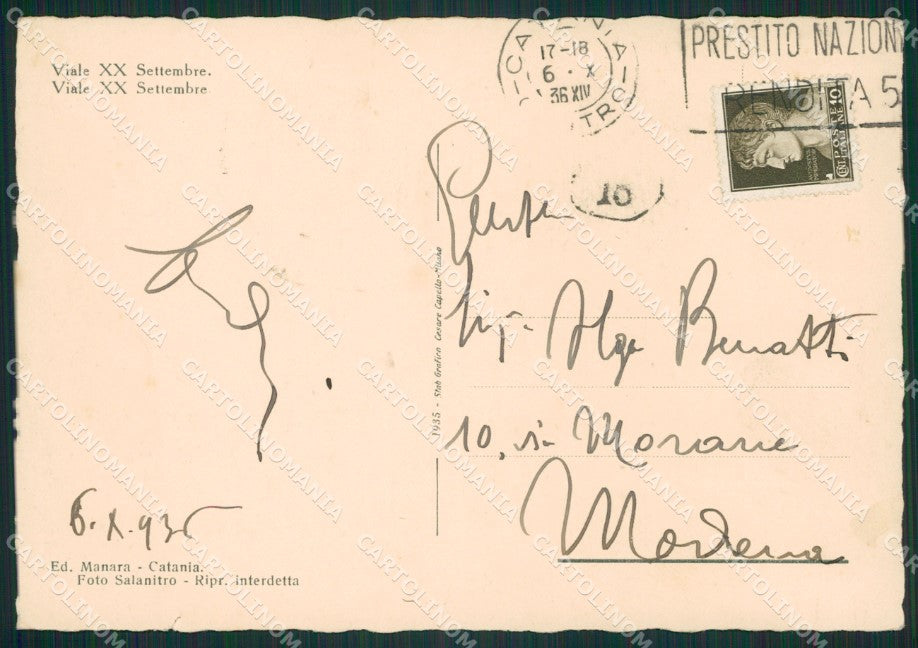 Viale XX Settembre.
Viale XX Settembre
CATANIA
17-18
6 · X
36 XIV
PRESTITO NAZION
RENDITA 5
POSTE ITALIANE
CENT. 10
16
6.X.936
Ed. Manara - Catania.
Foto Salanitro - Ripr. interdetta
1935 - Stab Grafico Cesare Capello-Milano
Gent.ma
Sig.na Olga Benatti
10, via Morane
Modena
CARTOLINOMANIA